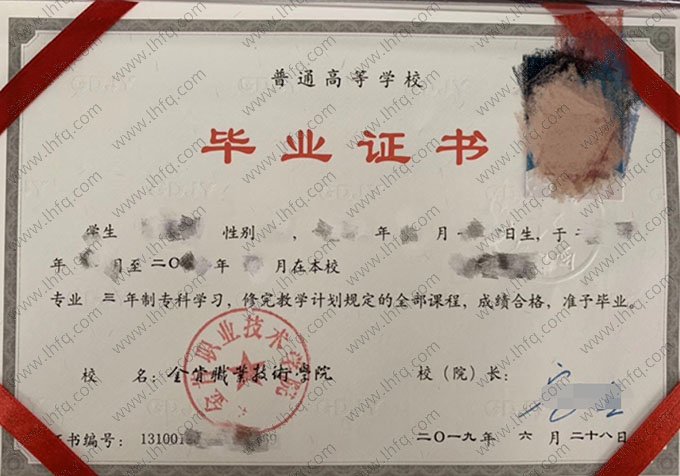 普通高等学校
毕业证书
学生 性别 年 月 日生，于
年 月至二〇 年 月在本校
专业 三年制专科学习，修完教学计划规定的全部课程，成绩合格，准予毕业。
校 名： 職業技術學院 校（院）长：
职业技术学院
证书编号： 13100
二〇一九年 六月二十八日
www.lhfq.com